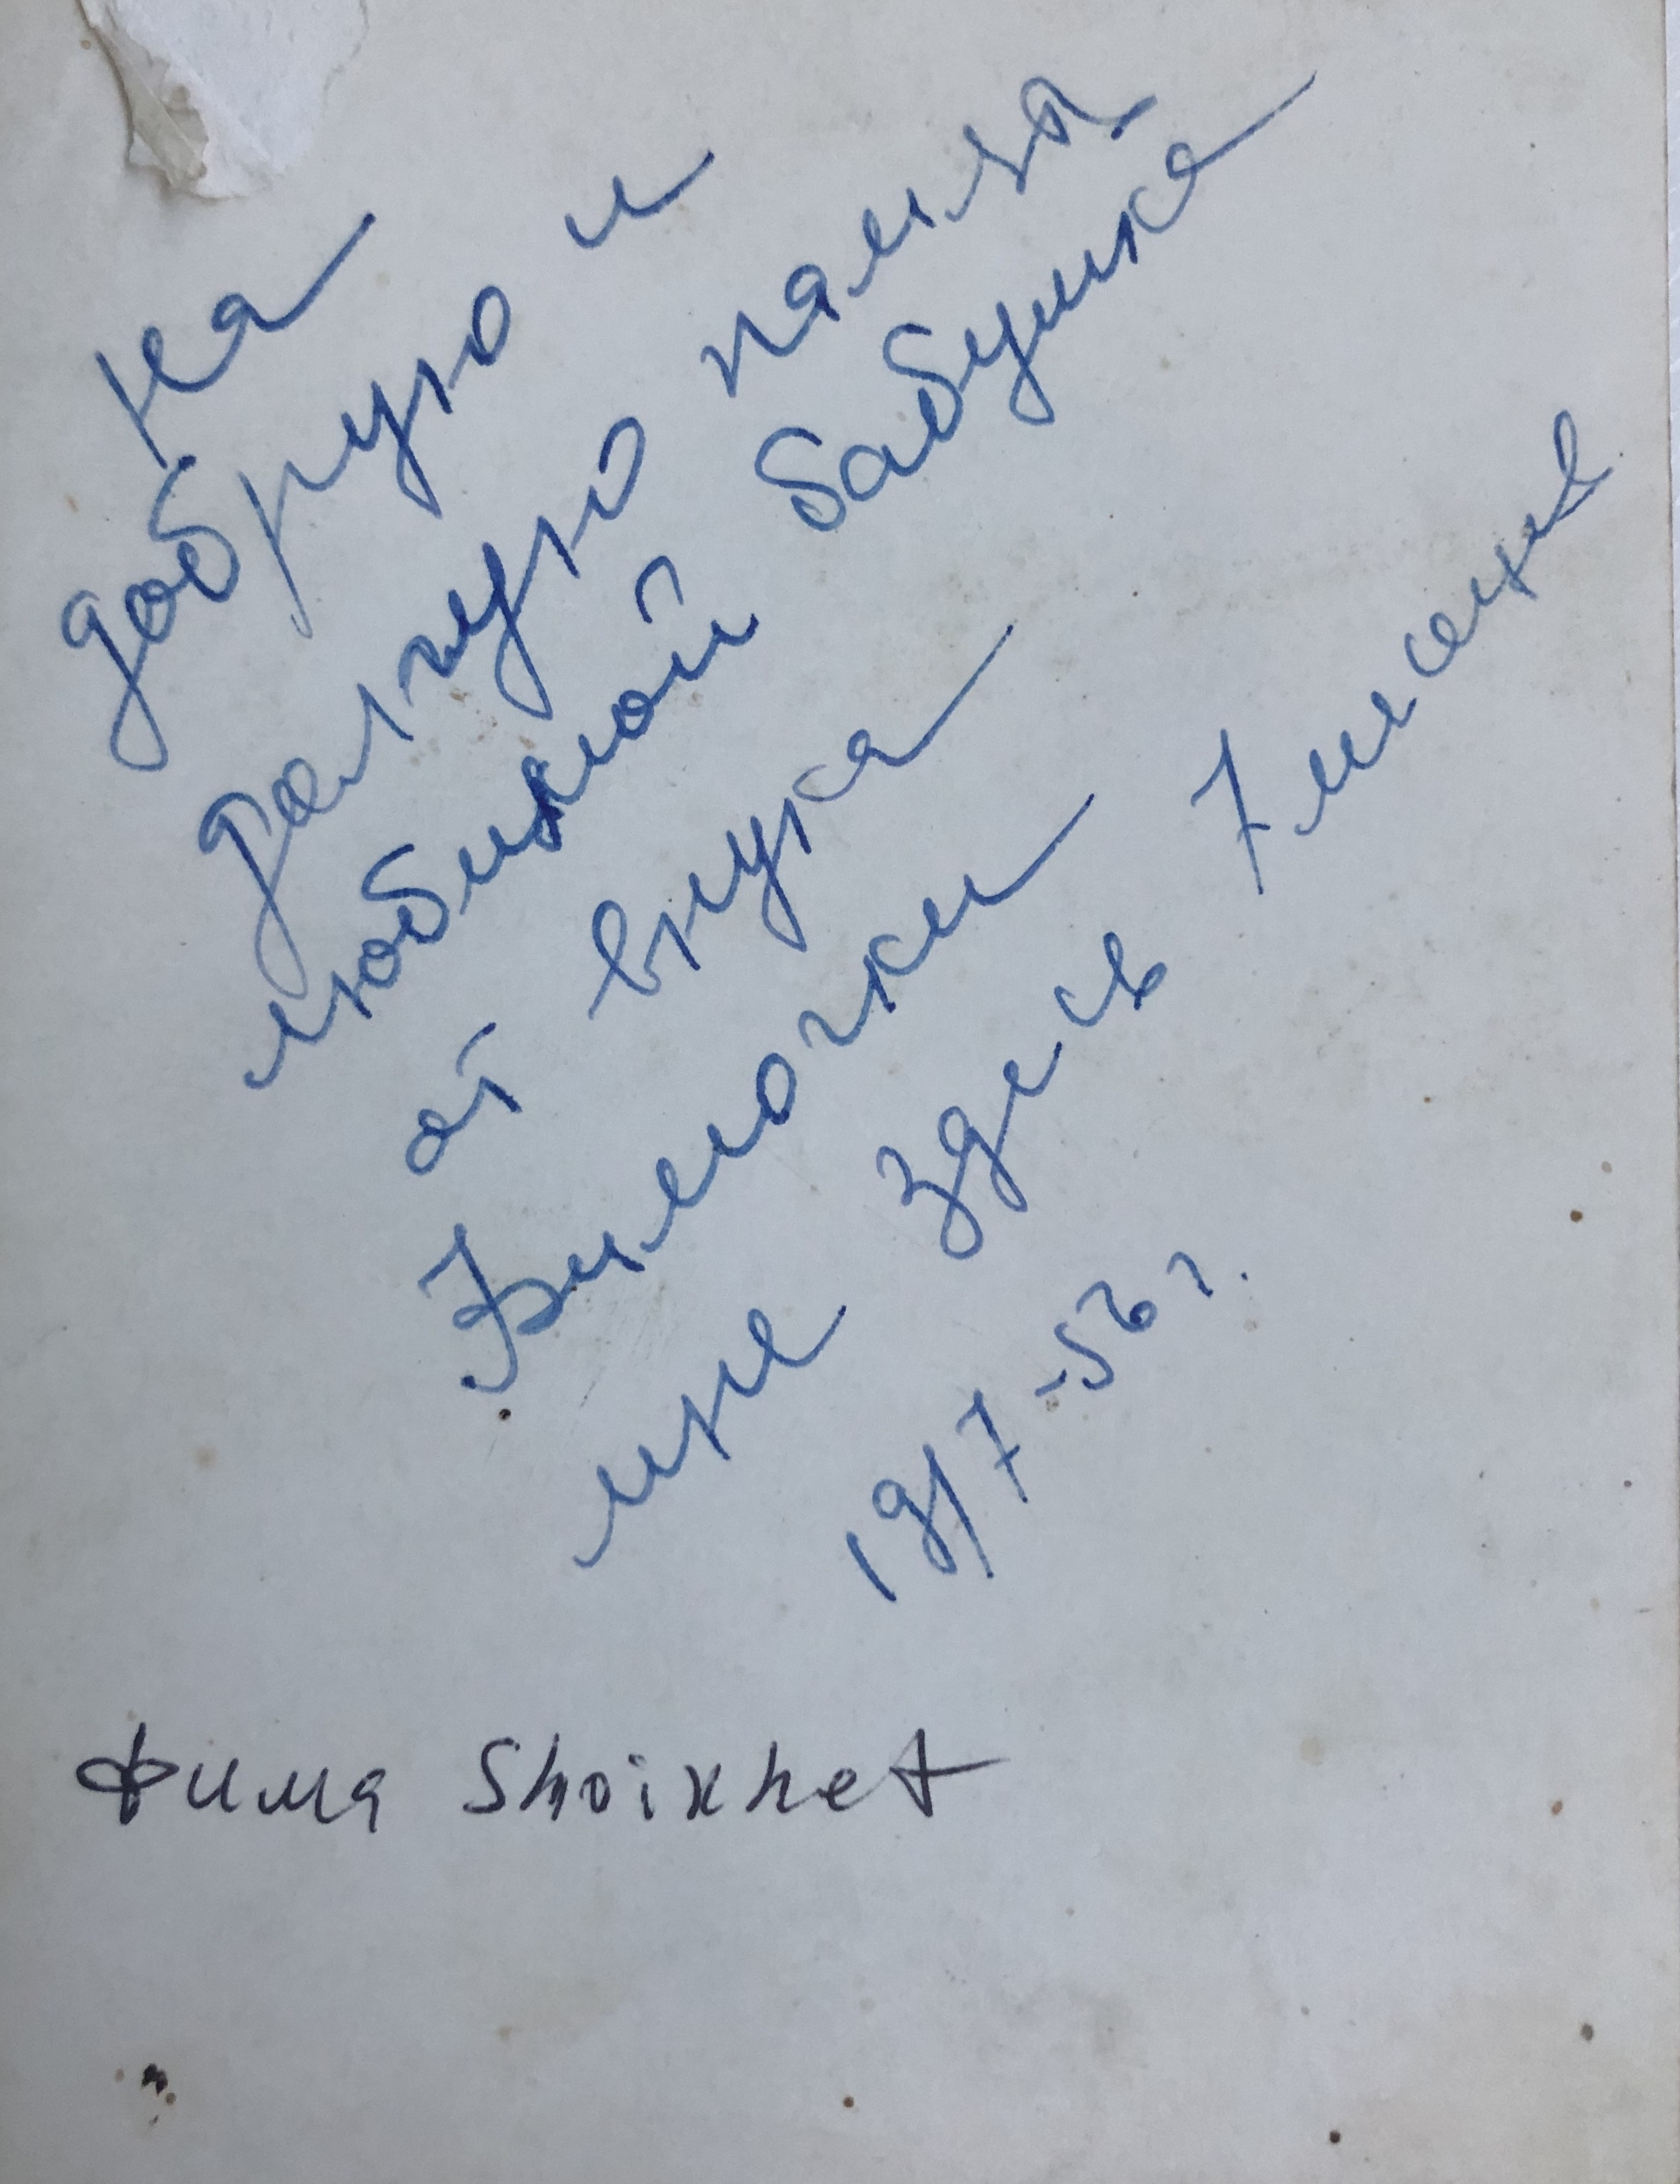 На
добрую и
долгую память
любимой бабушке
от внука
Фимочки
мне здесь 7 месяцев
19/7-56 г.
Фима Shoikhet